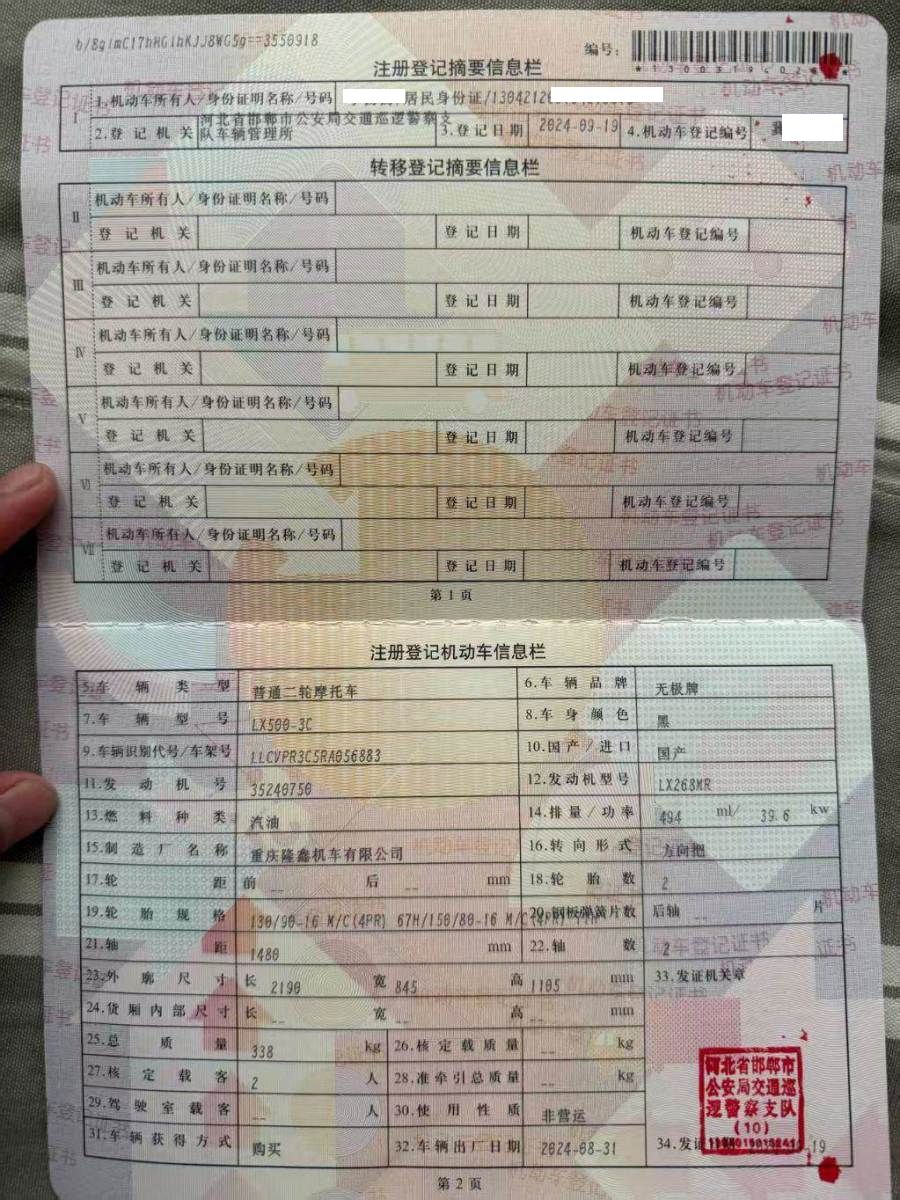 b/8glmC17hHGlhKJJ8WG5g==3550918
编号:
注册登记摘要信息栏
Ⅰ 1.机动车所有人/身份证明名称/号码 居民身份证/
2.登记机关 河北省邯郸市公安局交通巡逻警察支队车辆管理所 3.登记日期 2024-09-19 4.机动车登记编号
转移登记摘要信息栏
Ⅱ 机动车所有人/身份证明名称/号码
登记机关 登记日期 机动车登记编号
Ⅲ 机动车所有人/身份证明名称/号码
登记机关 登记日期 机动车登记编号
Ⅳ 机动车所有人/身份证明名称/号码
登记机关 登记日期 机动车登记编号
Ⅴ 机动车所有人/身份证明名称/号码
登记机关 登记日期 机动车登记编号
Ⅵ 机动车所有人/身份证明名称/号码
登记机关 登记日期 机动车登记编号
Ⅶ 机动车所有人/身份证明名称/号码
登记机关 登记日期 机动车登记编号
第1页
注册登记机动车信息栏
5.车辆类型 普通二轮摩托车 6.车辆品牌 无极牌
7.车辆型号 LX500-3C 8.车身颜色 黑
9.车辆识别代号/车架号 LLCVPR3C5RA056883 10.国产/进口 国产
11.发动机号 35240750 12.发动机型号 LX268MR
13.燃料种类 汽油 14.排量/功率 494 ml/ 39.6 kw
15.制造厂名称 重庆隆鑫机车有限公司 16.转向形式 方向把
17.轮距 前 -- 后 -- mm 18.轮胎数 2
19.轮胎规格 130/90-16 M/C(4PR) 67H/150/80-16 M/C(4PR) 20.钢板弹簧片数 后轴 -- 片
21.轴距 1480 mm 22.轴数 2
23.外廓尺寸 长 2190 宽 845 高 1105 mm 33.发证机关章
24.货厢内部尺寸 长 -- 宽 -- 高 -- mm
25.总质量 338 kg 26.核定载质量 -- kg
27.核定载客 2 人 28.准牵引总质量 -- kg
29.驾驶室载客 -- 人 30.使用性质 非营运
31.车辆获得方式 购买 32.车辆出厂日期 2024-08-31 34.发证日期
河北省邯郸市
公安局交通巡
逻警察支队
(10)
第2页